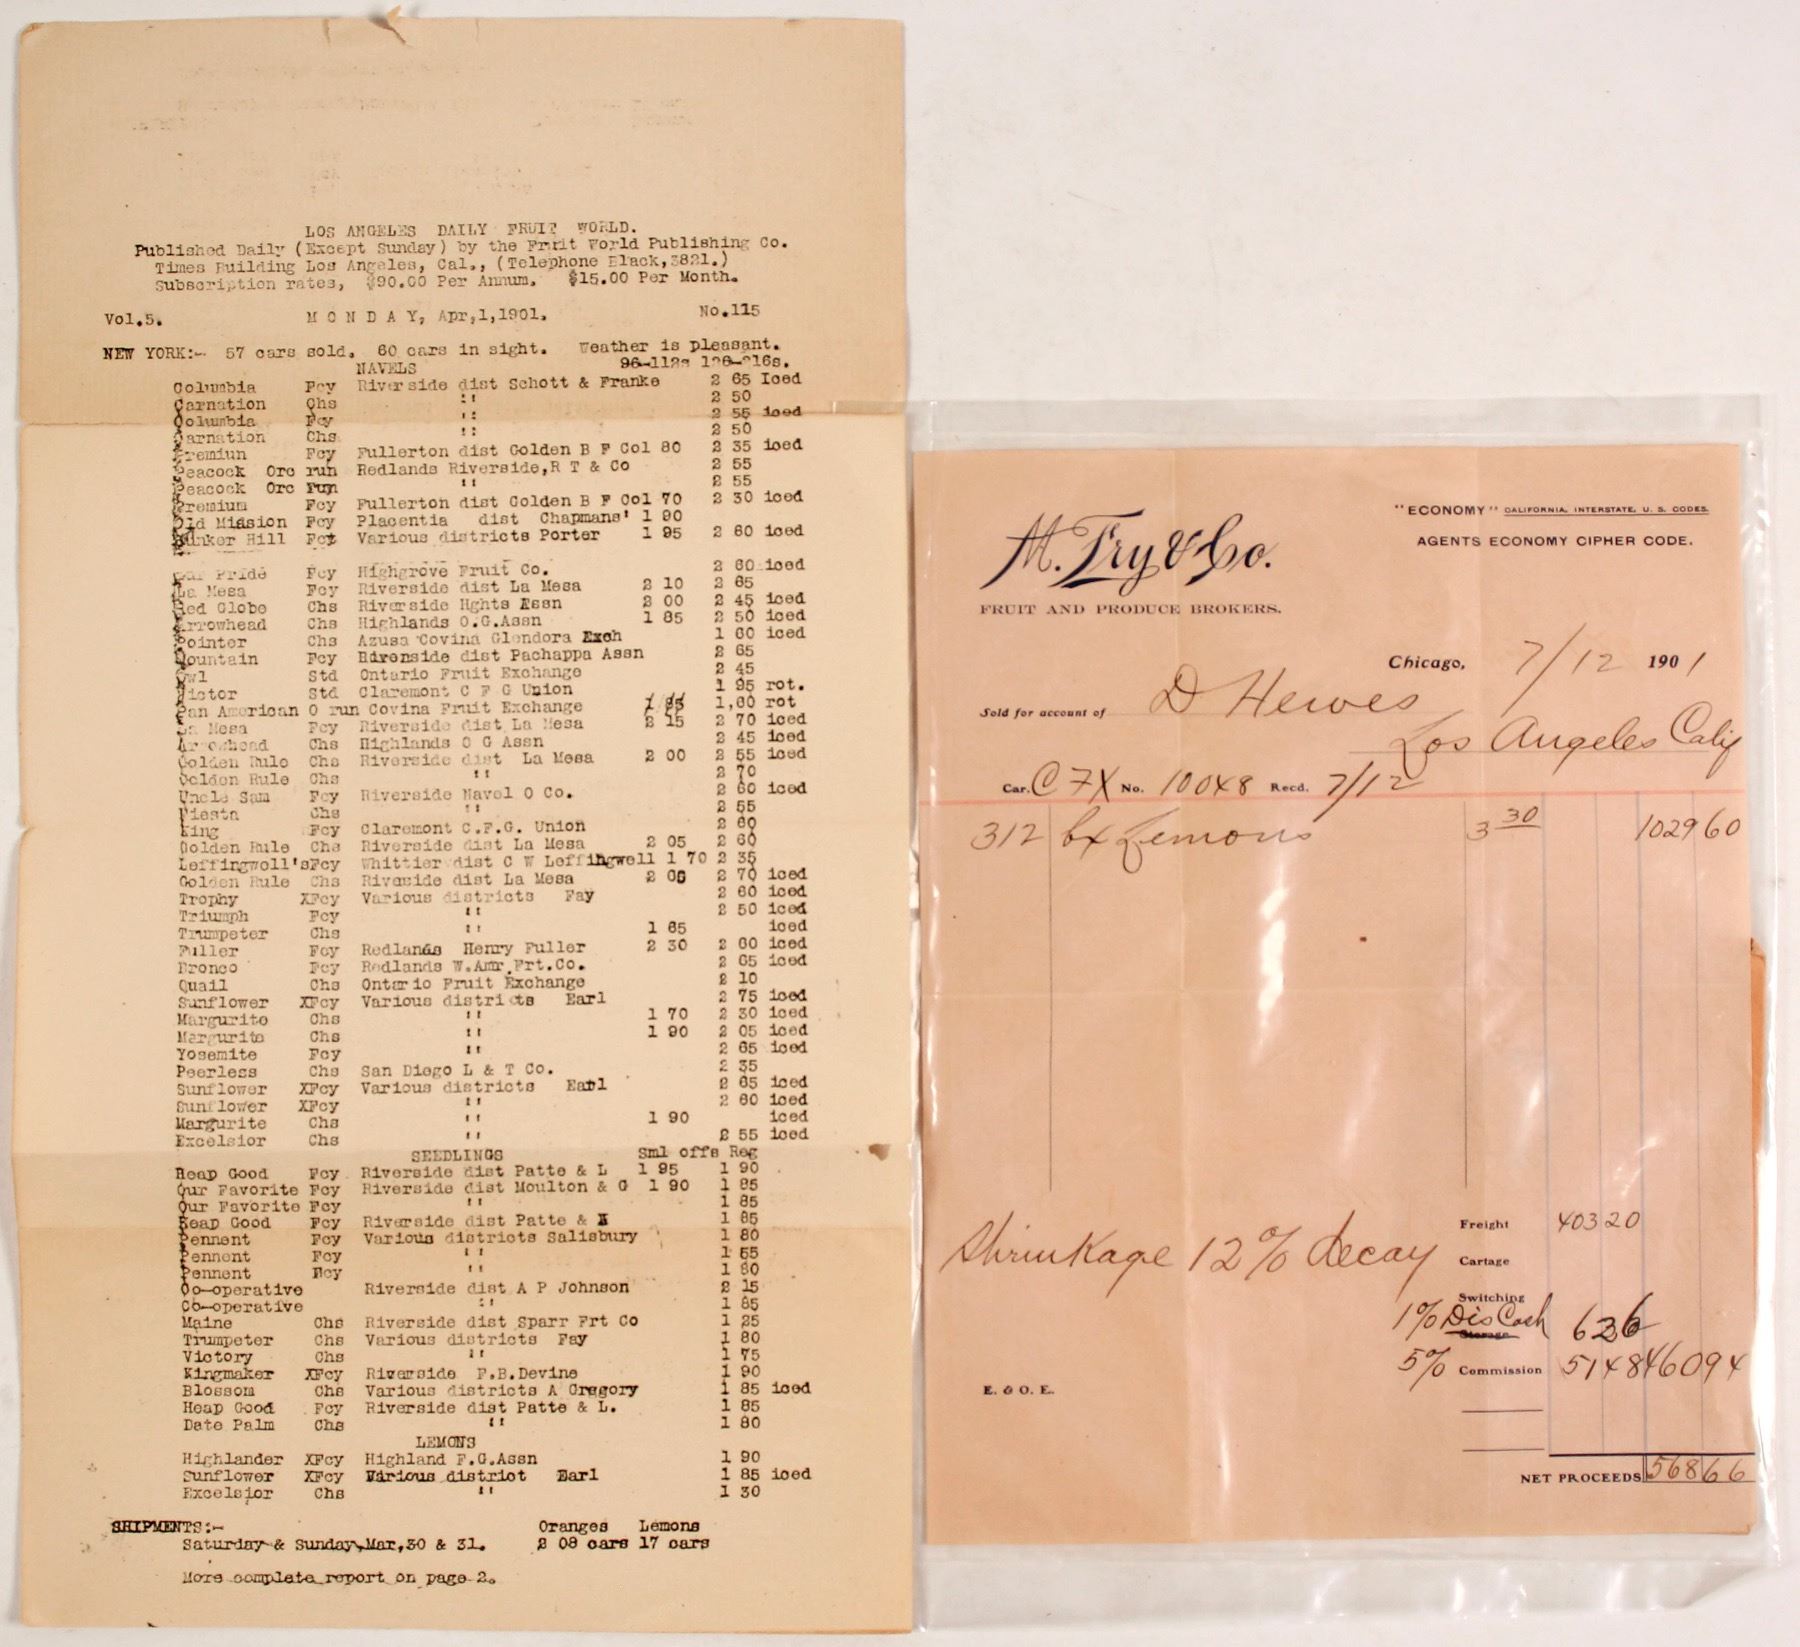 LOS ANGELES DAILY FRUIT WORLD.
Published Daily (Except Sunday) by the Fruit World Publishing Co.
Times Building Los Angeles, Cal., (Telephone Black,3821.)
Subscription rates, $90.00 Per Annum. $15.00 Per Month.
Vol.5. MONDAY, Apr,1,1901. No.115
NEW YORK:- 57 cars sold. 60 cars in sight. Weather is pleasant.
NAVELS 96-112s 126-216s.
Columbia Fcy Riverside dist Schott & Franke 2 65 Iced
Carnation Chs " 2 50
Columbia Fcy " 2 55 iced
Carnation Chs " 2 50
Premiun Fcy Fullerton dist Golden B F Col 80 2 35 iced
Peacock Orc run Redlands Riverside,R T & Co 2 55
Peacock Orc run " 2 55
Premium Fcy Fullerton dist Golden B F Col 70 2 30 iced
Old Mission Fcy Placentia dist Chapmans' 1 90
Bunker Hill Fcy Various districts Porter 1 95 2 60 iced
Our Pride Fcy Highgrove Fruit Co. 2 60 iced
La Mesa Fcy Riverside dist La Mesa 2 10 2 65
Red Globe Chs Riverside Hghts Assn 2 00 2 45 iced
Arrowhead Chs Highlands O.G.Assn 1 85 2 50 iced
Pointer Chs Azusa Covina Glendora Exch 1 60 iced
Mountain Fcy Riverside dist Pachappa Assn 2 65
Owl Std Ontario Fruit Exchange 2 45
Victor Std Claremont C F G Union 1 95 rot.
Pan American O run Covina Fruit Exchange 1,60 rot
La Mesa Fcy Riverside dist La Mesa 2 15 2 70 iced
Arrowhead Chs Highlands O G Assn 2 45 iced
Golden Rule Chs Riverside dist La Mesa 2 00 2 55 iced
Golden Rule Chs " 2 70
Uncle Sam Fcy Riverside Navel O Co. 2 60 iced
Fiesta Chs " 2 55
King Fcy Claremont C.F.G. Union 2 60
Golden Rule Chs Riverside dist La Mesa 2 05 2 60
Leffingwell'sFcy Whittier dist C W Leffingwell 1 70 2 35
Golden Rule Chs Riveside dist La Mesa 2 05 2 70 iced
Trophy XFcy Various districts Fay 2 60 iced
Triumph Fcy " 2 50 iced
Trumpeter Chs " 1 65 iced
Fuller Fcy Redlands Henry Fuller 2 30 2 60 iced
Bronco Fcy Redlands W.Amr.Frt.Co. 2 65 iced
Quail Chs Ontario Fruit Exchange 2 10
Sunflower XFcy Various districts Earl 2 75 iced
Margurite Chs " 1 70 2 30 iced
Margurite Chs " 1 90 2 05 iced
Yosemite Fcy " 2 65 iced
Peerless Chs San Diego L & T Co. 2 35
Sunflower XFcy Various districts Earl 2 65 iced
Sunflower XFcy " 2 60 iced
Margurite Chs " 1 90 iced
Excelsior Chs " 2 55 iced
SEEDLINGS Sml offs Reg
Heap Good Fcy Riverside dist Patte & L 1 95 1 90
Our Favorite Fcy Riverside dist Moulton & G 1 90 1 85
Our Favorite Fcy " 1 85
Heap Good Fcy Riverside dist Patte & L 1 85
Pennent Fcy Various districts Salisbury 1 80
Pennent Fcy " 1 55
Pennent Fcy " 1 80
Co-operative Riverside dist A P Johnson 2 15
Co-operative " 1 85
Maine Chs Riverside dist Sparr Frt Co 1 25
Trumpeter Chs Various districts Fay 1 80
Victory Chs " 1 75
Kingmaker XFcy Riverside F.B.Devine 1 90
Blossom Chs Various districts A Gregory 1 85 iced
Heap Good Fcy Riverside dist Patte & L. 1 85
Date Palm Chs " 1 80
LEMONS
Highlander XFcy Highland F.G.Assn 1 90
Sunflower XFcy Various district Earl 1 85 iced
Excelsior Chs " 1 30
SHIPMENTS:- Oranges Lemons
Saturday & Sunday,Mar,30 & 31. 2 08 cars 17 cars
More complete report on page 2.
"ECONOMY" CALIFORNIA, INTERSTATE, U. S. CODES.
AGENTS ECONOMY CIPHER CODE.
M. Fry & Co.
FRUIT AND PRODUCE BROKERS.
Chicago, 7/12 1901
Sold for account of D Hewes
Los Angeles Calif
Car. C F X No. 10048 Recd. 7/12
312 bx Lemons 3 30 1029 60
Freight 403 20
Shrinkage 12% decay Cartage
Switching
1% Dis Cash Storage 6 26
5% Commission 51 48 460 94
E. & O. E.
NET PROCEEDS 568 66